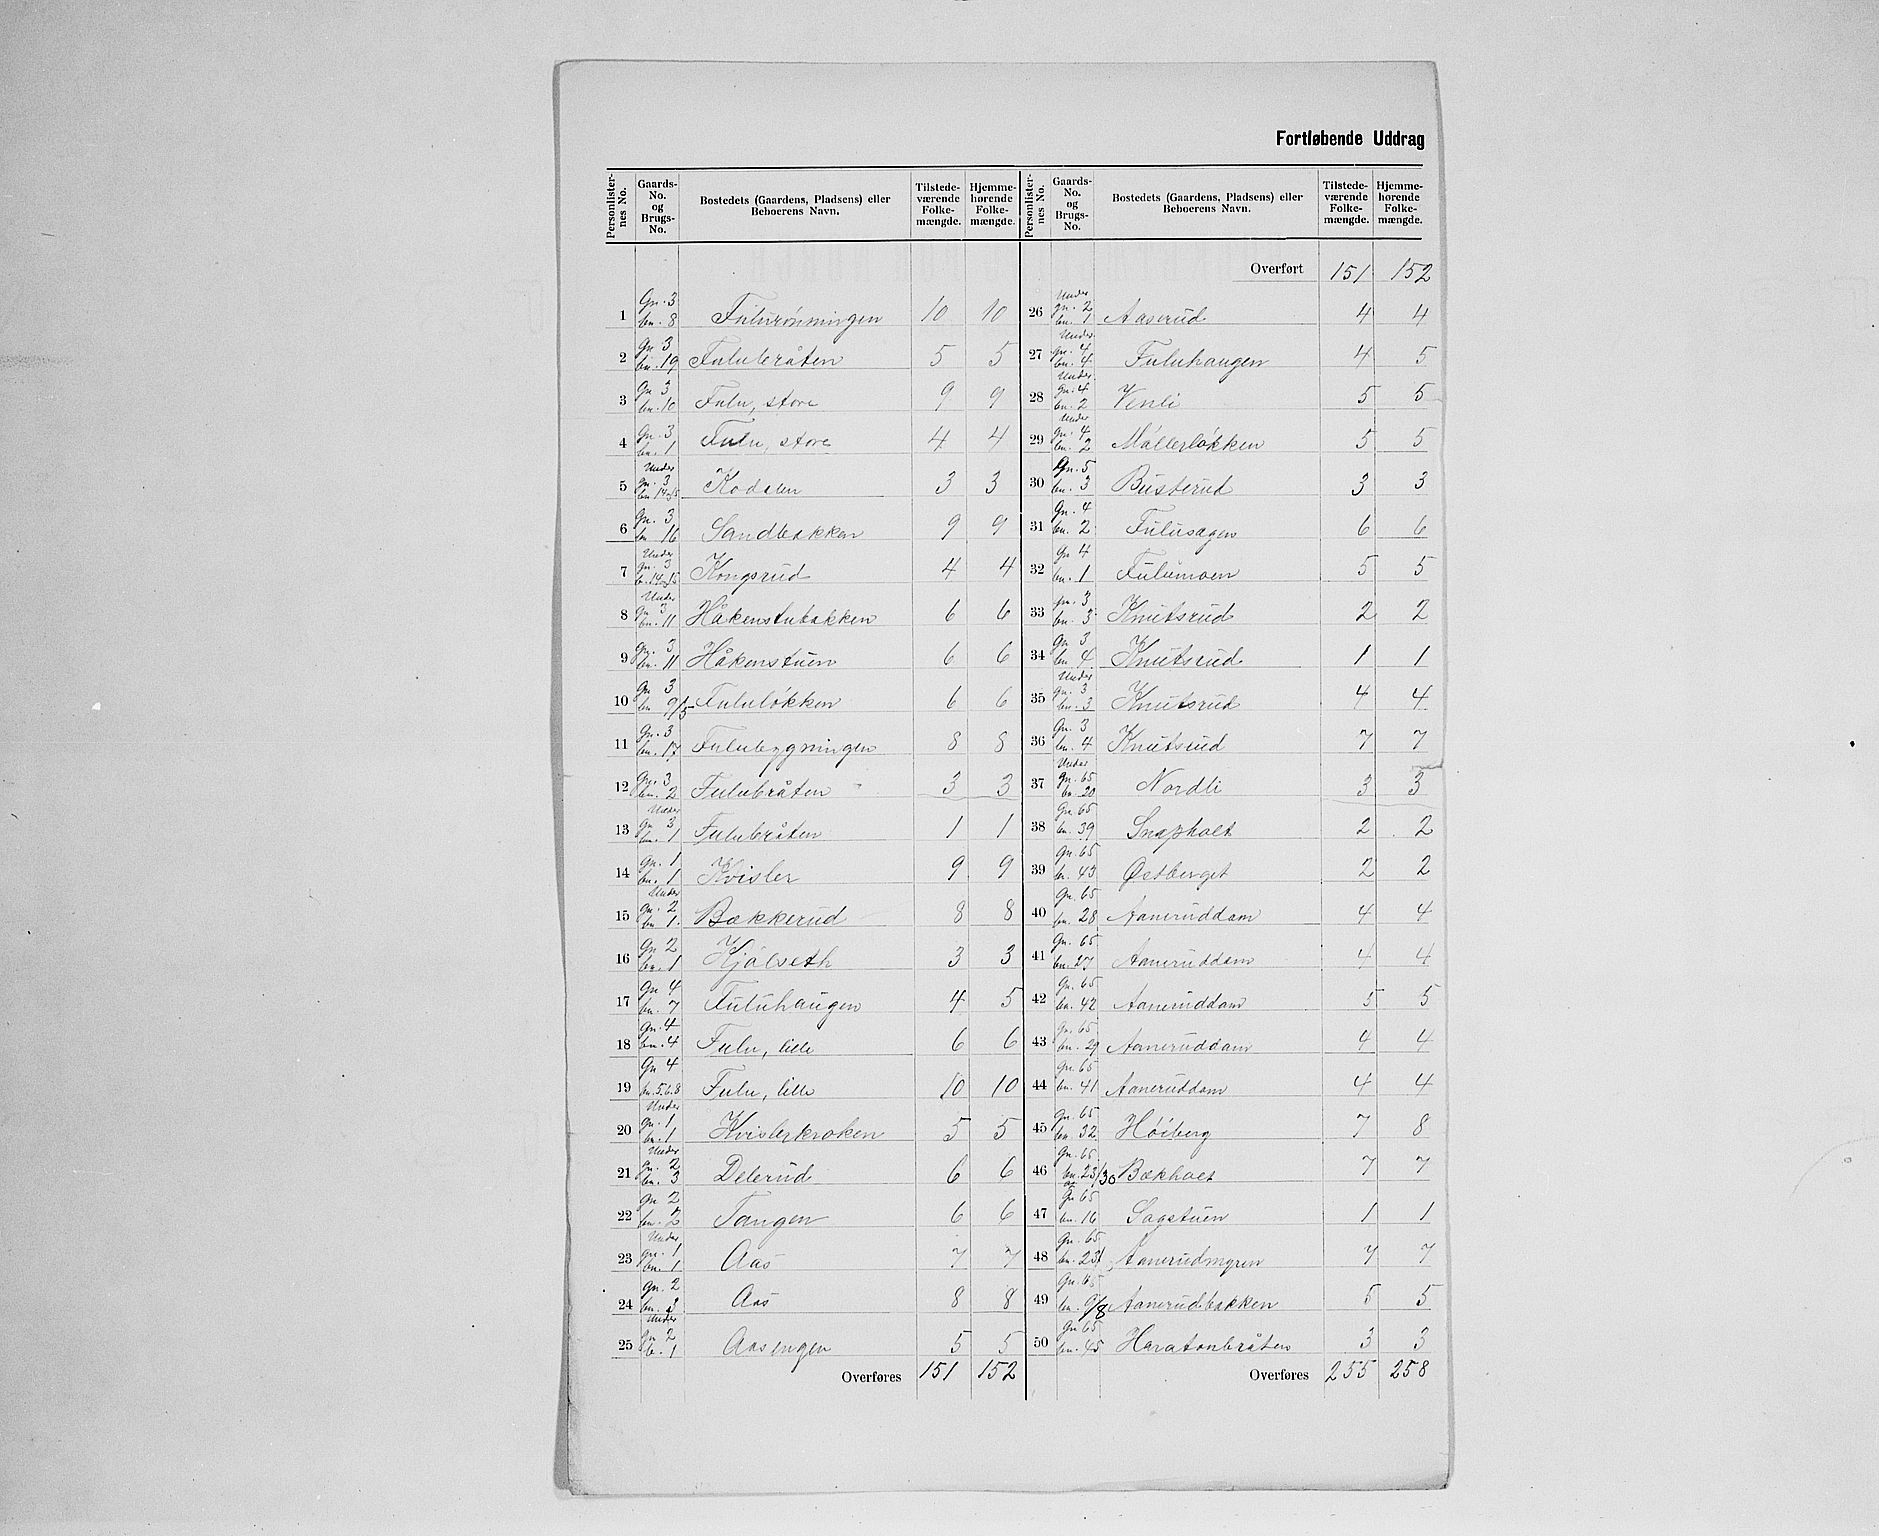 Fortløbende Uddrag
Personlisternes No. Gaards-No. og Brugs-No. Bostedets (Gaardens, Pladsens) eller Beboerens Navn. Tilstedeværende Folkemængde. Hjemmehørende Folkemængde. Personlisternes No. Gaards-No. og Brugs-No. Bostedets (Gaardens, Pladsens) eller Beboerens Navn. Tilstedeværende Folkemængde. Hjemmehørende Folkemængde.
1 Gn. 3 bn. 8 Fulurønningen 10 10
2 Gn 3 bn. 19 Fulubråten 5 5
3 Gn 3 bn. 10 Fulu, store 9 9
4 Gn. 3 bn. 1 Fulu, store 4 4
5 Under gn. 3 bn 14 og 15 Kodalen 3 3
6 Gn. 3 bn 16 Sandbakken 9 9
7 Under gn. 3 b. 14 og 15 Kongsrud 4 4
8 Under gn 3 bn. 11 Håkenstubakken 6 6
9 Gn. 3 bn. 11 Håkenstuen 6 6
10 Gn 3 bn 9/5 Fululøkken 6 6
11 Gn. 3 bn. 17 Fulubygningen 8 8
12 Gn. 3 bn. 2 Fulubråten 3 3
13 Under gn 3 bn. 1 Fulubråten 1 1
14 Gn. 1 bn. 1 Kvisler 9 9
15 Under gn. 2 bn 1. Bækkerud 8 8
16 Gn 2 bn. 1 Kjølseth 3 3
17 Gn 4 bn. 7 Fuluhaugen 4 5
18 Gn. 4 bn. 4 Fulu, lille 6 6
19 Gn 4 bn. 5.6.8 Fulu, lille 10 10
20 Under gn. 1 bn. 1 Kvislerkroken 5 5
21 Under gn. 2 bn. 3 Delerud 6 6
22 Gn 2 bn. 2 Tangen 6 6
23 Under gn. 1 bn. 1 Aas 7 7
24 Gn. 2 bn. 3 Aas 8 8
25 Under gn 2 b. 1 Aasengen 5 5
Overføres 151 152
Overført 151 152
26 Under gn. 2 bn. 1 Aaserud 4 4
27 Under gn. 4 bn. 4 Fuluhaugen 4 5
28 Under gn. 4 bn. 2 Venli 5 5
29 Under gn. 4 bn. 2 Møllerløkken 5 5
30 Gn. 5 bn. 3 Busterud 3 3
31 Gn. 4 bn. 2 Fulusagen 6 6
32 Gn 4 bn. 1 Fulumoen 5 5
33 gn. 3 bn. 3 Knutsrud 2 2
34 Gn 3 bn 4 Knutsrud 1 1
35 Under gn. 3 bn. 3 Knutsrud 4 4
36 Gn. 3 bn. 4 Knutsrud 7 7
37 Under gn. 65 bn. 20 Nordli 3 3
38 Gn. 65 bn. 39 Snapholt 2 2
39 Gn. 65 bn. 43 Østberget 2 2
40 Gn. 65 bn. 28 Aaneruddam 4 4
41 Gn. 65 bn. 27 Aaneruddam 4 4
42 Gn. 65 bn. 42 Aaneruddam 5 5
43 Gn. 65 bn. 29 Aaneruddam 4 4
44 Gn. 65 bn. 41 Aaneruddam 4 4
45 Gn. 65 bn 32 Høiberg 7 8
46 Gn. 65 bn. 23/30 Bækholt 7 7
47 Gn 65 bn. 16 Sagstuen 1 1
48 Gn. 65 bn. 23 Aanerudmyren 7 7
49 Gn. 65 bn. 9/8 Aanerudbakken 5 5
50 Gn 65 bn. 45 Haratonbråten 3 3
Overføres 255 258